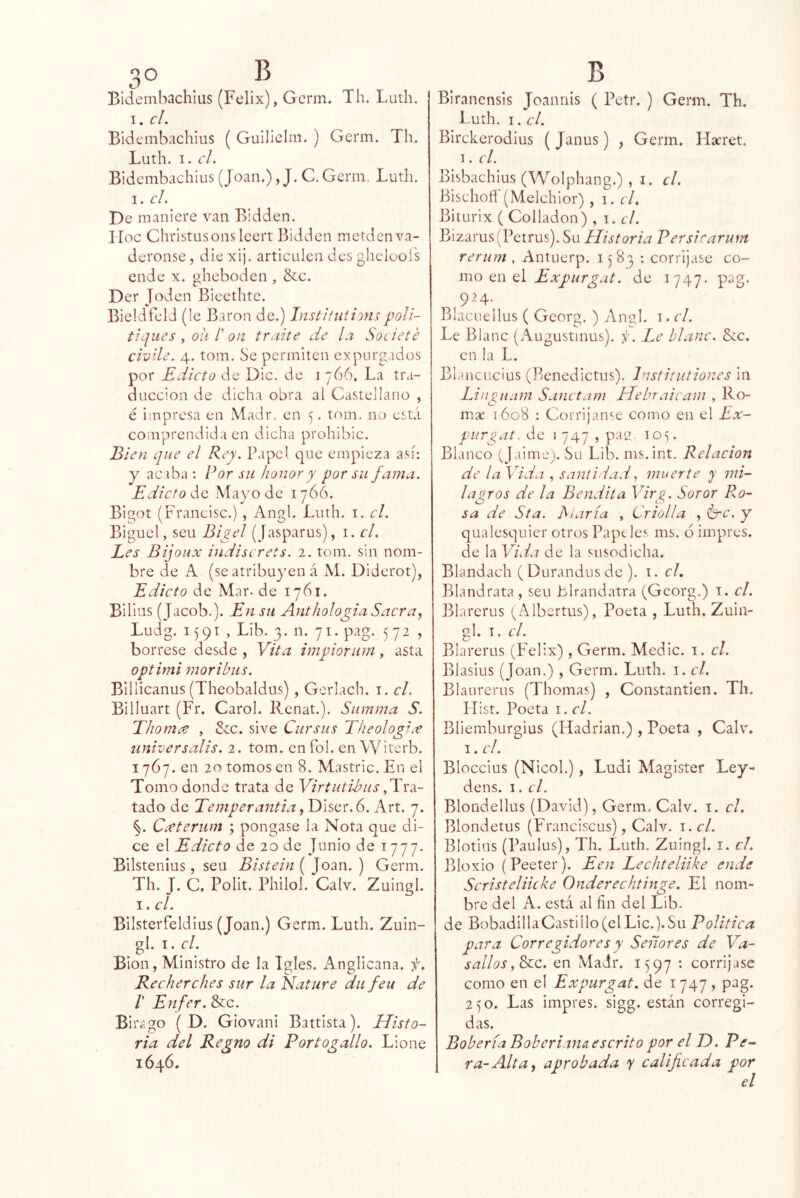 30 B
Bidembachius (Felix), Germ. Th. Luth.
1. cl.
Bidembachius ( Guilielm. ) Germ. Th.
Luth. 1. cl.
Bidembachius (Joan.), J. C. Germ. Luth.
1. cl.
De maniere van Bidden.
Hoc Christus ons leert Bidden met den va-
deronse, die xij. articulen des gheloofs
ende x. gheboden, &c.
Der Joden Bieethte.
Bieldfeld (le Baron de.) Institutions poli-
tiques, où l' on traite de la Societè
civile. 4. tom. Se permiten expurgados
por Edicto de Dic. de 1766. La tra-
duccion de dicha obra al Castellano,
é impresa en Madr. en 5. tom. no está
comprendida en dicha prohibic.
Bien que el Rey. Papel que empieza así:
y acaba: Por su honor y por su fama.
Edicto de Mayo de 1766.
Bigot (Francisc.), Angl. Luth. 1. cl.
Biguel, seu Bigel (Jasparus), 1. cl.
Les Bijoux indiscrets. 2. tom. sin nom-
bre de A (se atribuyen á M. Diderot),
Edicto de Mar. de 1761.
Bilius (Jacob.). En su Anthologia Sacra,
Ludg. 1591, Lib. 3. n. 71. pag. 572,
borrese desde, Vita impiorum, asta
optimi moribus.
Billicanus (Theobaldus), Gerlach. 1. cl.
Billuart (Fr. Carol. Renat.). Summa S.
Thomæ, &c. sive Cursus Theologiæ
universalis. 2. tom. en fol. en Witerb.
1767. en 20 tomos en 8. Mastric. En el
Tomo donde trata de Virtutibus, Tra-
tado de Temperantia, Diser. 6. Art. 7.
§. Cæterum; pongase la Nota que di-
ce el Edicto de 20 de Junio de 1777.
Bilstenius, seu Bistein ( Joan. ) Germ.
Th. J. C. Polit. Philol. Calv. Zuingl.
1. cl.
Bilsterfeldius (Joan.) Germ. Luth. Zuin-
gl. 1. cl.
Bion, Ministro de la Igles. Anglicana. ℣.
Recherches sur la Nature du feu de
l' Enfer. &c.
Birago ( D. Giovani Battista ). Histo-
ria del Regno di Portogallo. Lione
1646.
B
Biranensis Joannis ( Petr. ) Germ. Th.
Luth. 1. cl.
Birckerodius ( Janus ), Germ. Hæret.
1. cl.
Bisbachius (Wolphang.), 1. cl.
Bischoff (Melchior), 1. cl.
Biturix ( Colladon ), 1. cl.
Bizarus (Petrus). Su Historia Persicarum
rerum, Antuerp. 1583: corrijase co-
mo en el Expurgat. de 1747. pag.
924.
Blacuellus ( Georg. ) Angl. 1. cl.
Le Blanc (Augustinus). ℣. Le blanc. &c.
en la L.
Blancucius (Benedictus). Institutiones in
Linguam Sanctam Hebraicam, Ro-
mæ 1608: Corrijanse como en el Ex-
purgat. de 1747, pag. 105.
Blanco (Jaime). Su Lib. ms. int. Relacion
de la Vida, santidad, muerte y mi-
lagros de la Bendita Virg. Soror Ro-
sa de Sta. Maria, Criolla, &c. y
qualesquier otros Papeles ms. ó impres.
de la Vida de la susodicha.
Blandach ( Durandus de ). 1. cl.
Blandrata, seu Blrandatra (Georg.) 1. cl.
Blarerus (Albertus), Poeta, Luth. Zuin-
gl. 1. cl.
Blarerus (Felix), Germ. Medic. 1. cl.
Blasius (Joan.), Germ. Luth. 1. cl.
Blaurerus (Thomas), Constantien. Th.
Hist. Poeta 1. cl.
Bliemburgius (Hadrian.), Poeta, Calv.
1. cl.
Bloccius (Nicol.), Ludi Magister Ley-
dens. 1. cl.
Blondellus (David), Germ. Calv. 1. cl.
Blondetus (Franciscus), Calv. 1. cl.
Blotius (Paulus), Th. Luth. Zuingl. 1. cl.
Bloxio (Peeter). Een Lechteliike ende
Scristeliicke Onderechtinge. El nom-
bre del A. está al fin del Lib.
de Bobadilla Castillo (el Lic.). Su Politica
para Corregidores y Señores de Va-
sallos, &c. en Madr. 1597: corrijase
como en el Expurgat. de 1747, pag.
250. Las impres. sigg. están corregi-
das.
Bobería Boberiana escrito por el D. Pe-
ra-Alta, aprobada y calificada por
el